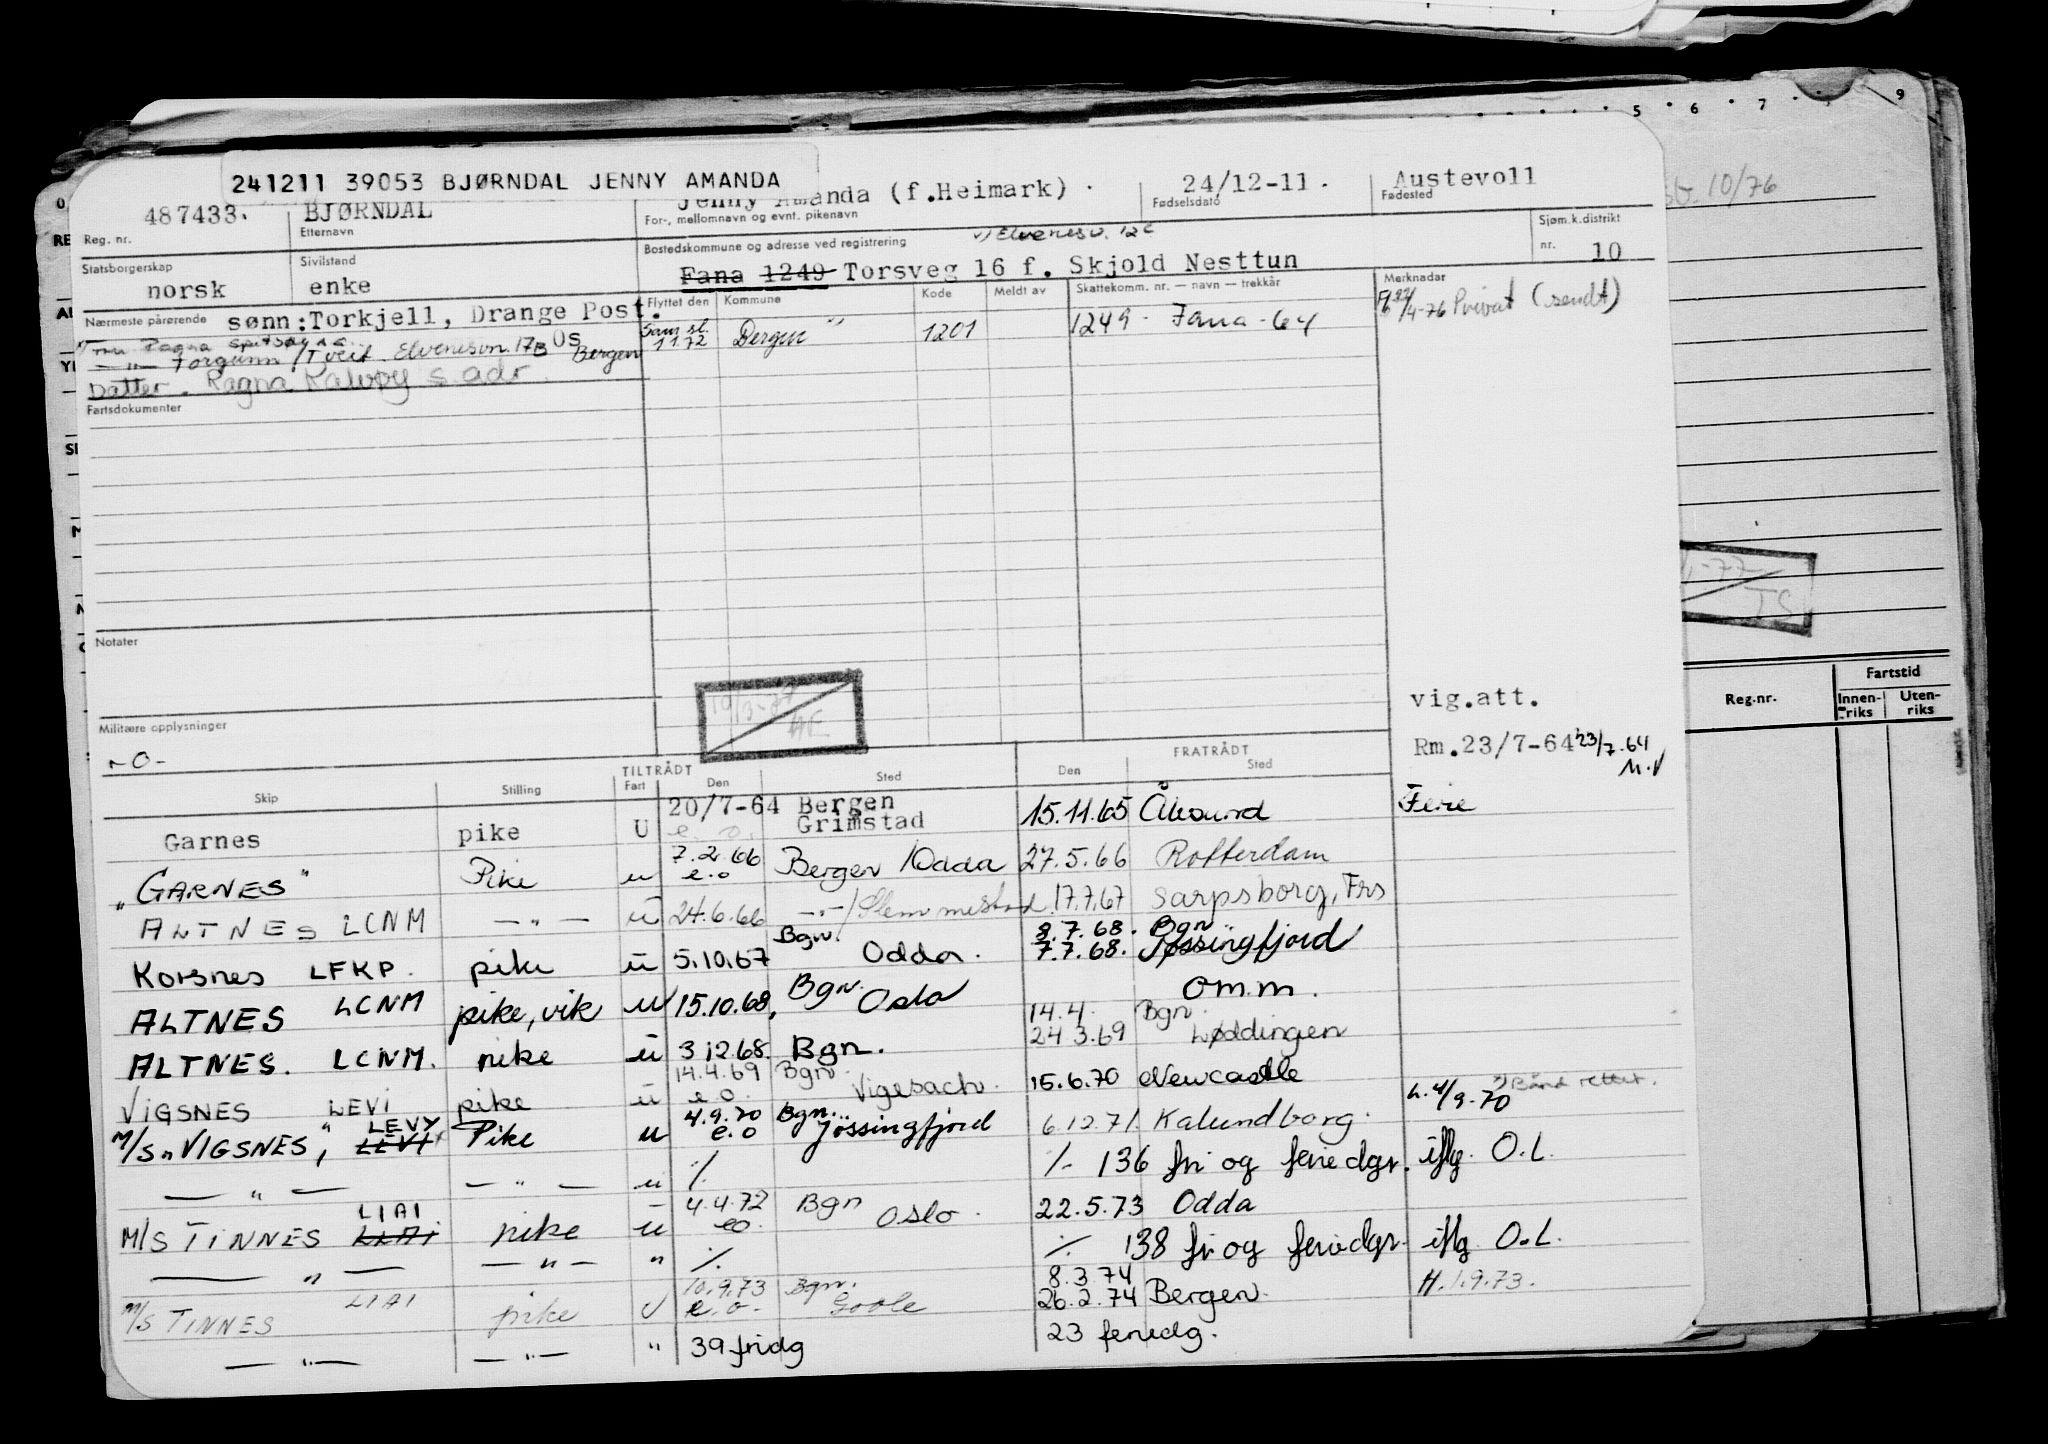 5 · 6 · 7 · 9
10/76
241211 39053 BJØRNDAL JENNY AMANDA
487433. BJØRNDAL Jenny Amanda (f.Heimark) 24/12-11. Austevoll
Reg. nr. Etternavn For-, mellomnavn og evnt. pikenavn Fødselsdato Fødested
Statsborgerskap Sivilstand Bostedskommune og adresse ved registrering Elvenesv. 12c Sjøm.k.distrikt
nr. 10
norsk enke Fana 1249 Torsveg 16 f. Skjold Nesttun
Nærmeste pårørende sønn:Torkjell, Drange Post. Flyttet den Kommune Kode Meldt av Skattekomm. nr. — navn — trekkår Merknadar
Os Sam.sl. 1.1.72 Bergen 1201 1249 - Fana - 64 4-76 Privat (sendt)
— " — Torgunn Tveit Elvenesvn. 17B Bergen
Datter. Ragna Kalvøy s. adr.
Fartsdokumenter
Notater
Militære opplysninger
- o -
vig.att.
Rm.23/7-64 23/7.64
TILTRÅDT FRATRÅDT
Skip Stilling Fart Den Sted Den Sted
Garnes pike U 20/7-64 e.o. Bergen Grimstad 15.11.65 Ålesund Ferie
"GARNES" Pike u 7.2.66 e.o Bergen/Odda 27.5.66 Rotterdam
ALTNES LCNM — " — u 24.6.66 — " —/Slemmestad 17.7.67 Sarpsborg, Frs
Korsnes LFKP. pike u 5.10.67 Bgn. Odda. 8.7.68. Bgn 7.7.68. Jøssingfjord
ALTNES LCNM pike, vik u 15.10.68, Bgn. Oslo omm.
ALTNES. LCNM. pike u 3.12.68. Bgn. 14.4. Bgn. 24.3.69 Løddingen
VIGSNES LEVI pike u 14.4.69 e.o. Bgn. Vigesach. 15.6.70 Newcastle
M/S "VIGSNES" LEVY LEVI Pike u 4.9.70 e.o Bgn. Jøssingfjord 6.12.71. Kalundborg. 4/9-70
— " — — " — u ./. ./. 136 fri og feriedgr. iflg. O.L.
M/S TINNES LIAI LIAI pike u 4.4.72 eo. Bgn Oslo. 22.5.73 Odda
— " — — " — " ./. ./. 138 fri og feriedgr. iflg. O.L.
M/S TINNES LIAI pike U 10.9.73 e.o. Bgn. Goole 8.3.74 26.2.74 Bergen. H.1.9.73.
— " — — " — " 39 fridg 23 feriedg.
Reg.nr. Fartstid
Innen-riks Uten-riks